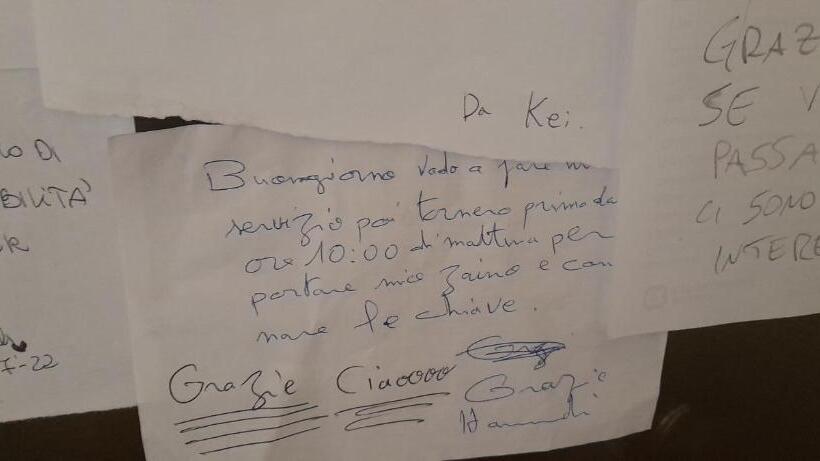 Da Kei.
Buongiorno vado a fare
servizio poi tornero prima da
ore 10:00 di mattina per
portare mio zaino e con
nare le chiave.
Grazie Ciaoooo
Grazie
Hamdi
GRAZ
SE V
PASSA
CI SONO
INTERE
O DI
BILITÀ
7-22